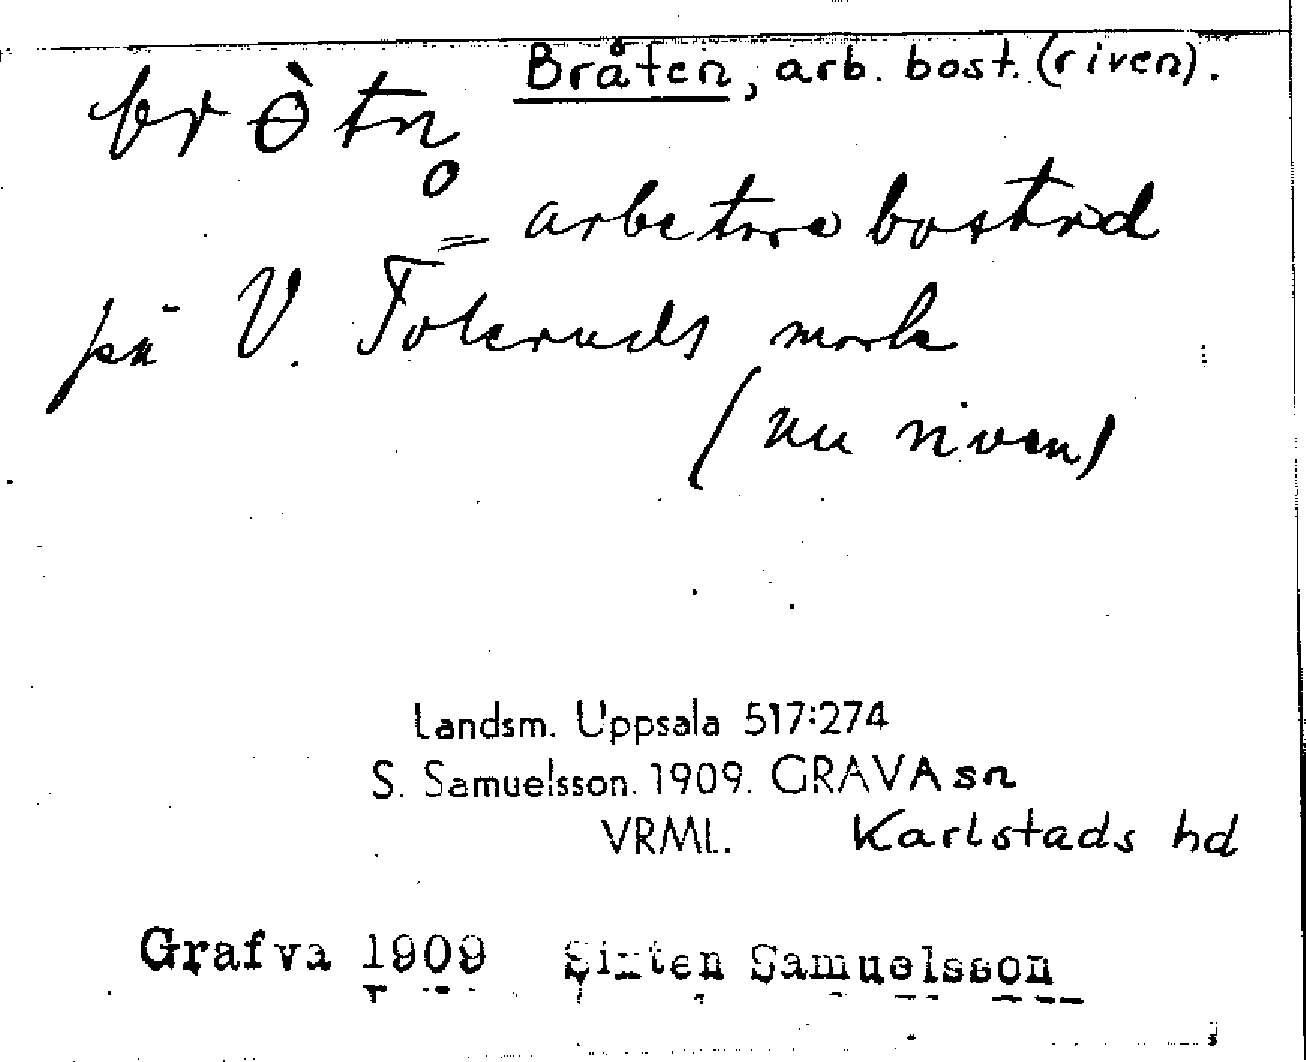 Bråten, arb. bost. (riven).
brɵ̀tn̥
= arbetarebostad
på V. Toleruds mark
(nu riven)
Landsm. Uppsala 517:274
S. Samuelsson. 1909. GRAVA sn
VRML. Karlstads hd
Grafva 1909 Sixten Samuelsson